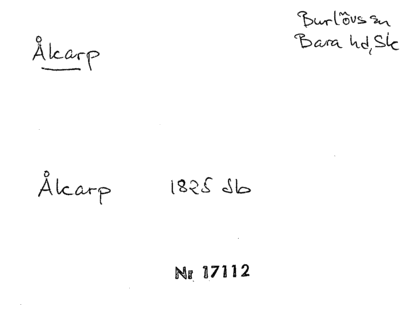 Åkarp
Burlövs sn
Bara hd, Sk
Åkarp 1825 db
Nr 17112